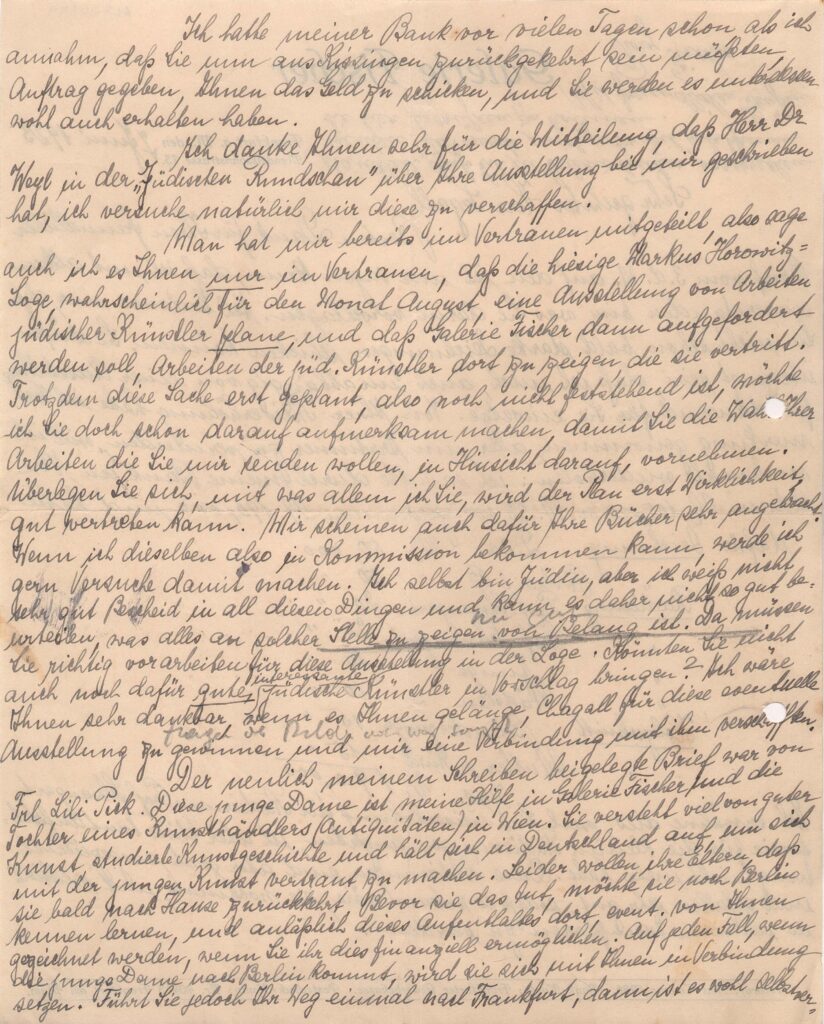 Ich hatte meiner Bank vor vielen Tagen schon als ich
annahm, daß Sie nun aus Kissingen zurückgekehrt sein müßten,
Auftrag gegeben, Ihnen das Geld zu schicken, und Sie werden es unterdessen
wohl auch erhalten haben.
Ich danke Ihnen sehr für die Mitteilung, daß Herr Dr
Weyl in der „Jüdischen Rundschau" über Ihre Ausstellung bei mir geschrieben
hat, ich versuche natürlich mir diese zu verschaffen.
Man hat mir bereits im Vertrauen mitgeteilt, also sage
auch ich es Ihnen nur im Vertrauen, daß die hiesige Markus Horowitz=
Loge, wahrscheinlich für den Monat August, eine Ausstellung von Arbeiten
jüdischer Künstler plane, und daß Galerie Fischer dann aufgefordert
werden soll, Arbeiten der jüd. Künstler dort zu zeigen, die sie vertritt.
Trotzdem diese Sache erst geplant, also noch nicht feststehend ist, möchte
ich Sie doch schon darauf aufmerksam machen, damit Sie die Wahl Ihrer
Arbeiten die Sie mir senden wollen, in Hinsicht darauf, vornehmen.
Überlegen Sie sich, mit was allem ich Sie, wird der Plan erst Wirklichkeit,
gut vertreten kann. Mir scheinen auch dafür Ihre Bücher sehr angebracht.
Wenn ich dieselben also in Kommission bekommen kann, werde ich
gern Versuche damit machen. Ich selbst bin Jüdin, aber ich weiß nicht
sehr gut Bescheid in all diesen Dingen und kann es daher nicht so gut be-
urteilen, was alles an solcher Stelle zu zeigen von Belang ist. Da müssen
Sie richtig vorarbeiten für diese Ausstellung in der Loge. Könnten Sie nicht
auch noch dafür gute, interessante jüdische Künstler in Vorschlag bringen? Ich wäre
Ihnen sehr dankbar, wenn es Ihnen gelänge, Chagall für diese eventuelle
Ausstellung zu gewinnen und mir eine Verbindung mit ihm verschafften.
Der neulich meinem Schreiben beigelegte Brief war von
Frl. Lili Pisk. Diese junge Dame ist meine Hilfe in Galerie Fischer und die
Tochter eines Kunsthändlers (Antiquitäten) in Wien. Sie versteht viel von guter
Kunst, studierte Kunstgeschichte und hält sich in Deutschland auf, um sich
mit der jungen Kunst vertraut zu machen. Leider wollen ihre Eltern, daß
sie bald nach Hause zurückkehrt. Bevor sie das tut, möchte sie noch Berlin
kennen lernen, und anläßlich dieses Aufenthaltes dort, event. von Ihnen
gezeichnet werden, wenn Sie ihr dies finanziell ermöglichen. Auf jeden Fall, wenn
die junge Dame nach Berlin kommt, wird sie sich mit Ihnen in Verbindung
setzen. Führt Sie jedoch Ihr Weg einmal nach Frankfurt, dann ist es wohl selbstver=